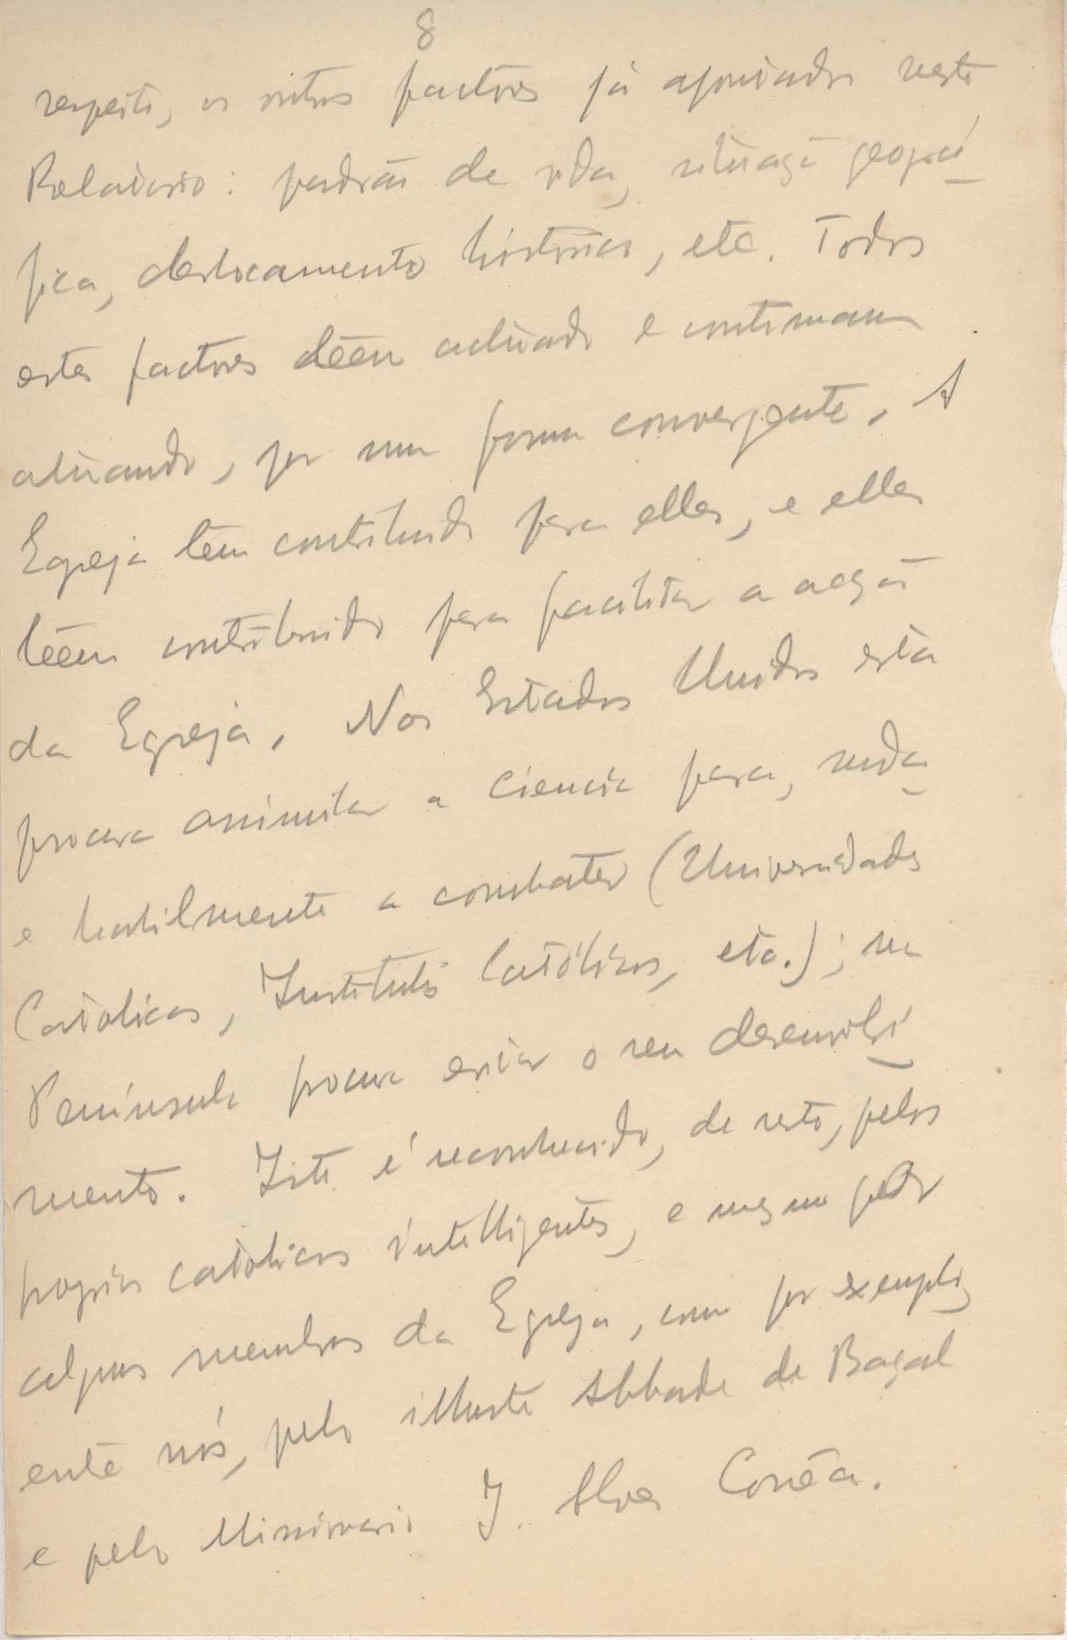 8
respeito, os outros factores já apontados neste
Relatorio: padrão de vida, situação geográ-
fica, deslocamento histórico, etc. Todos
estes factores téem actuado e continuam
atuando, por uma forma convergente. A
Egreja tem contribuido para elles, e elles
téem contribuido para facilitar a acção
da Egreja. Nos Estados Unidos esta
procura assimilar a ciencia para,
e habilmente a combater (Universidades
Catolicas, Institutos Católicos, etc.); na
Peninsula procura evitar o seu desenvolvi-
mento. Isto é reconhecido, de resto, pelos
proprios catolicos intelligentes, e mesmo por
alguns membros da Egreja, como por exemplo,
entre nós, pelo illustre Abbade de Baçal
e pelo Missionario J. Alves Corrêa.